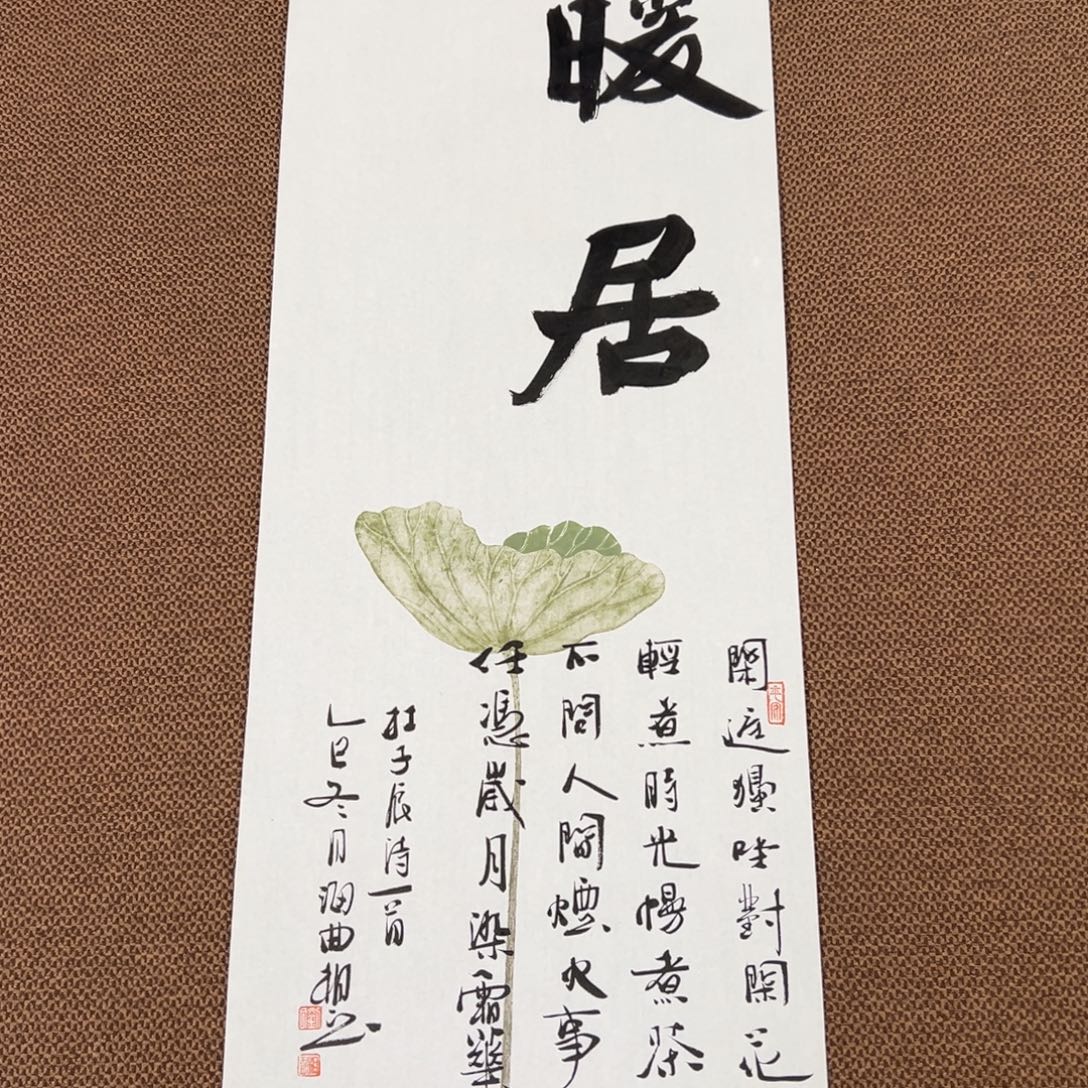 暖
居
閑庭獨坐對閑花
輕煮時光慢煮茶
不問人間煙火事
任憑歲月染霜華
杜子辰詩一首
乙巳冬月海曲